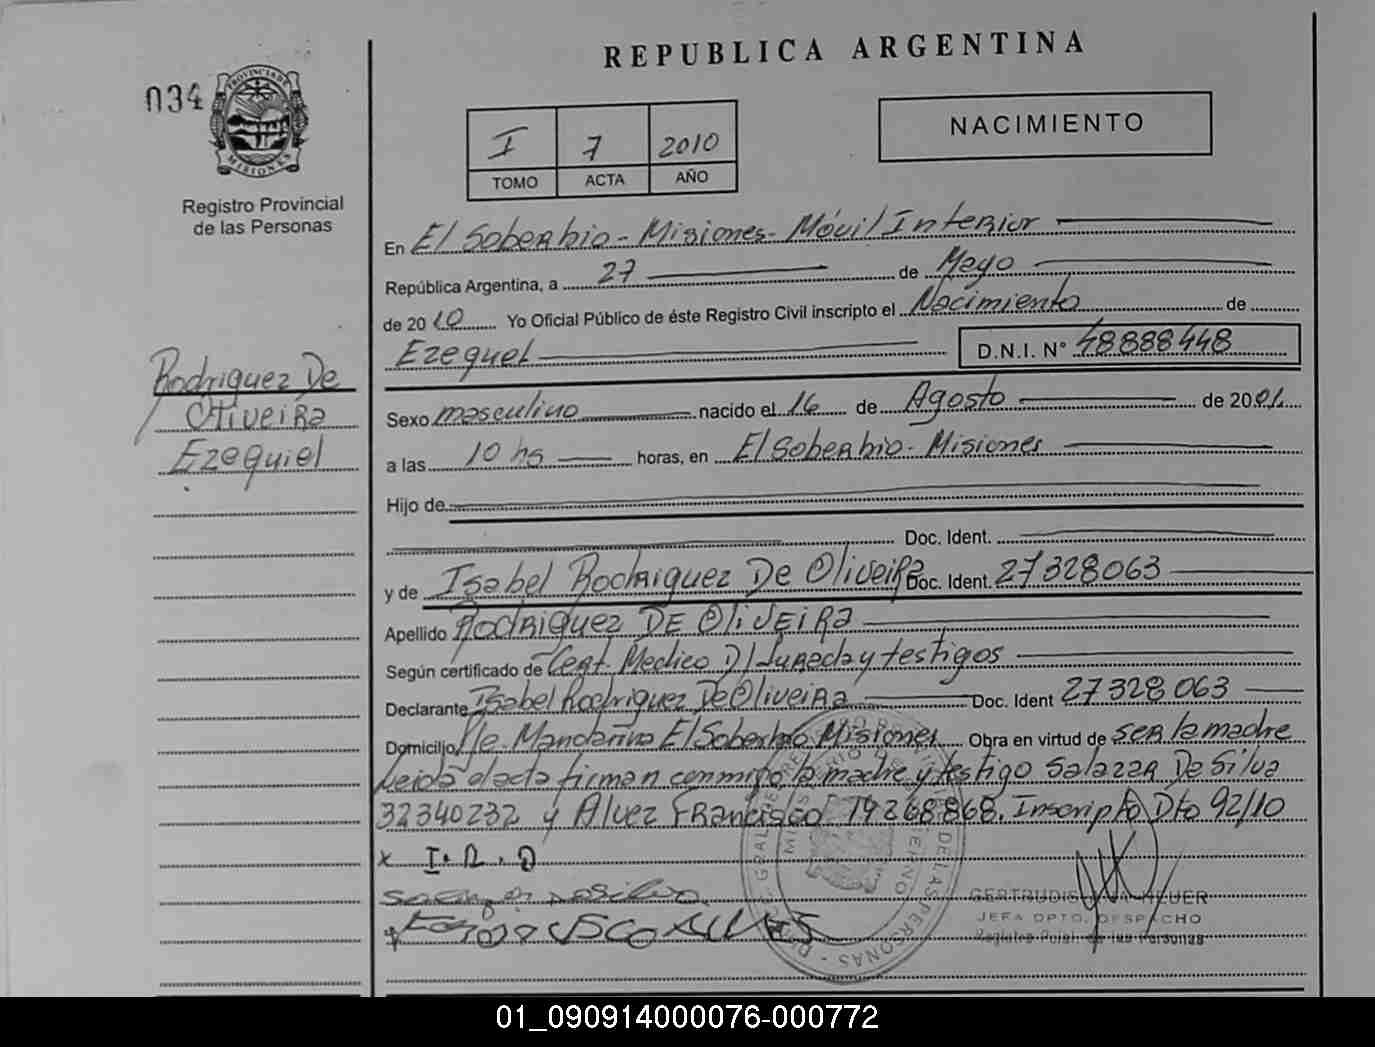 REPUBLICA ARGENTINA
034
PROVINCIA DE
MISIONES
Registro Provincial
de las Personas
I 7 2010
TOMO ACTA AÑO
NACIMIENTO
En El Soberbio - Misiones - Móvil Interior
República Argentina, a 27 de Mayo
de 2010 Yo Oficial Público de éste Registro Civil inscripto el Nacimiento de
Ezequel D.N.I. N° 48888448
Rodriguez De
Oliveira
Ezequiel
Sexo masculino nacido el 16 de Agosto de 2001
a las 10 hs horas, en El Soberbio - Misiones
Hijo de
Doc. Ident.
y de Isabel Rodriguez De Oliveira Doc. Ident. 27328063
Apellido Rodriguez DE OliVEiRa
Según certificado de Cert. Medico D/Jurada y testigos
Declarante Isabel Rodriguez De Oliveira Doc. Ident 27328063
Domicilio Pje. Mandarina El Soberbio Misiones Obra en virtud de ser la madre
leida el acta firman conmigo, la madre y testigo Salazar De Silva
32340232 y Alvez Francisco 19268868. Inscripto Dto 92/10
x I. R. O
GERTRUDIS
JEFA DPTO. DESPACHO
Registro Pcial. de las Personas
DE LAS PERSONAS
01_090914000076-000772